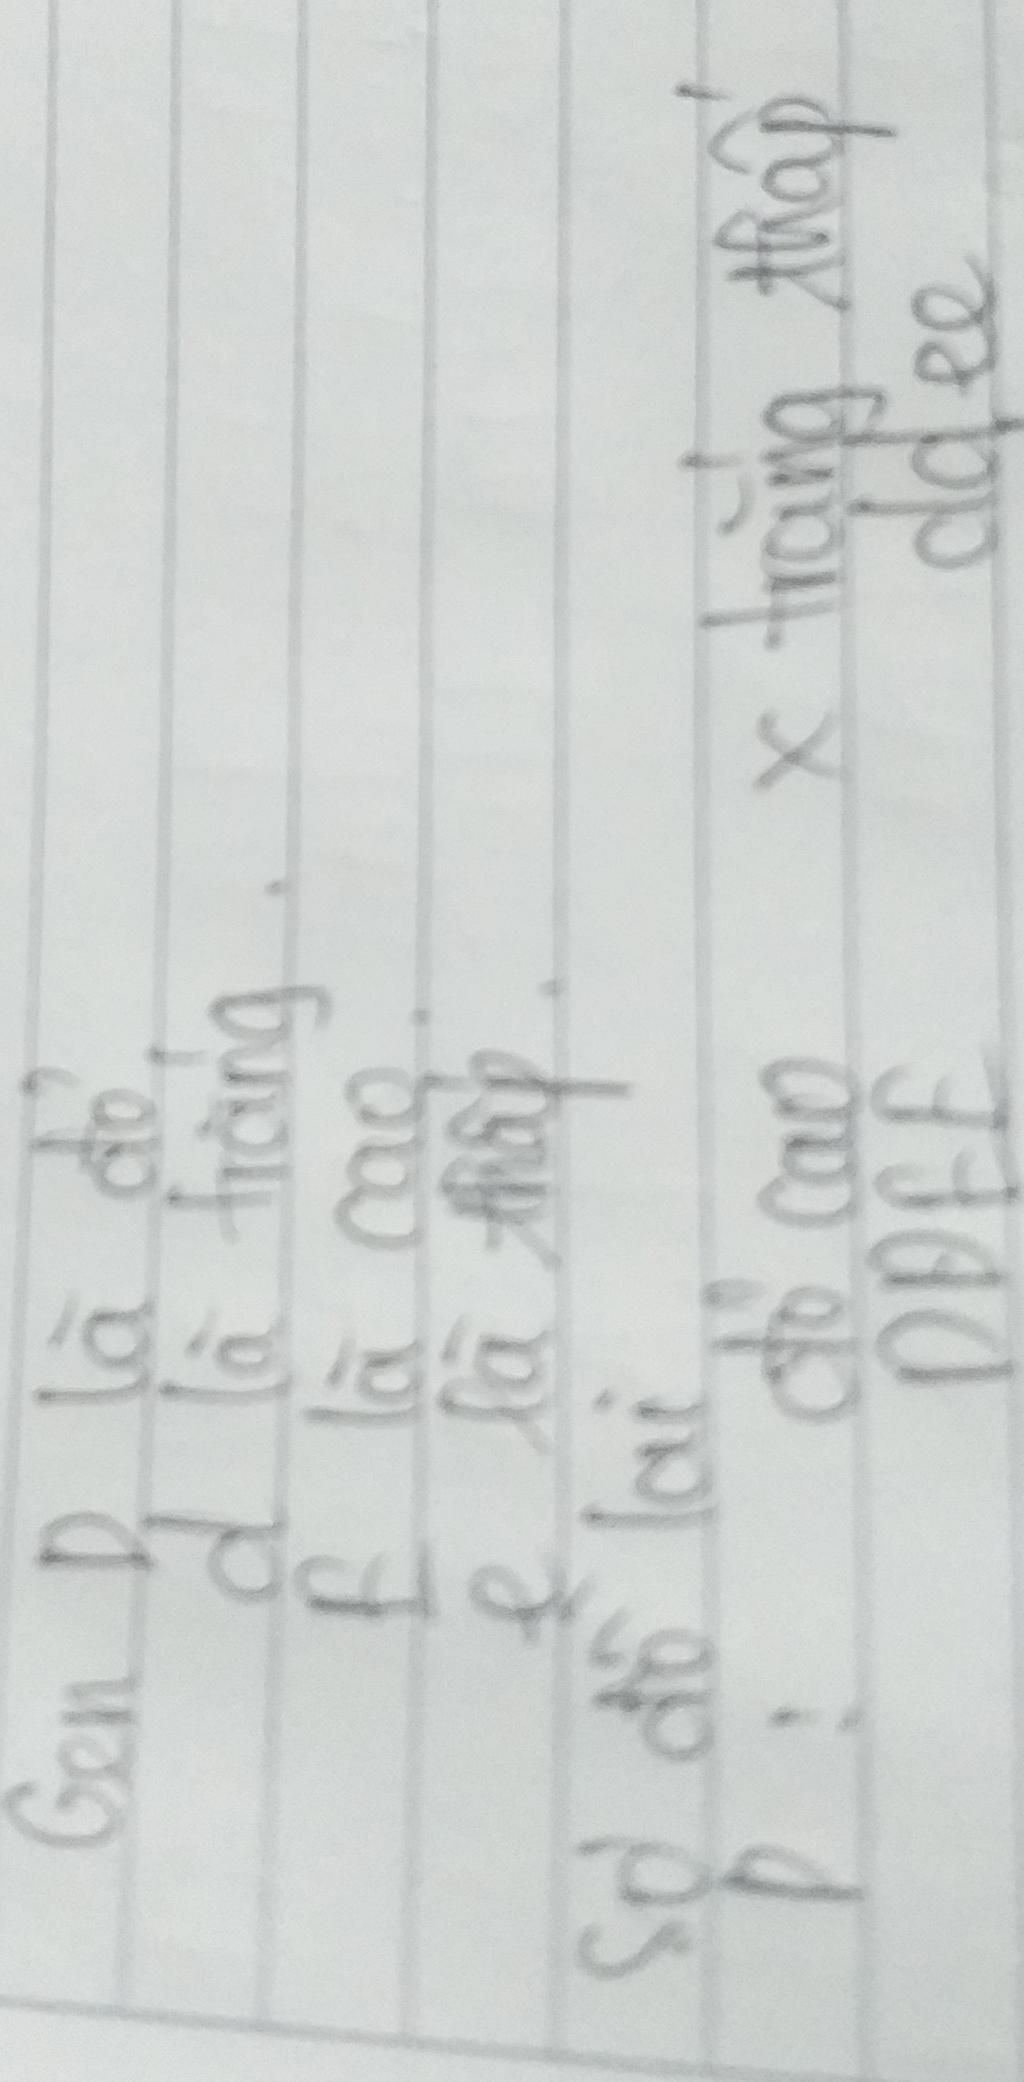 Gen D là đỏ
d là trắng.
E là cao.
e là thấp.
Sơ đồ lai
P : đỏ cao x trắng thấp
DDEE ddee